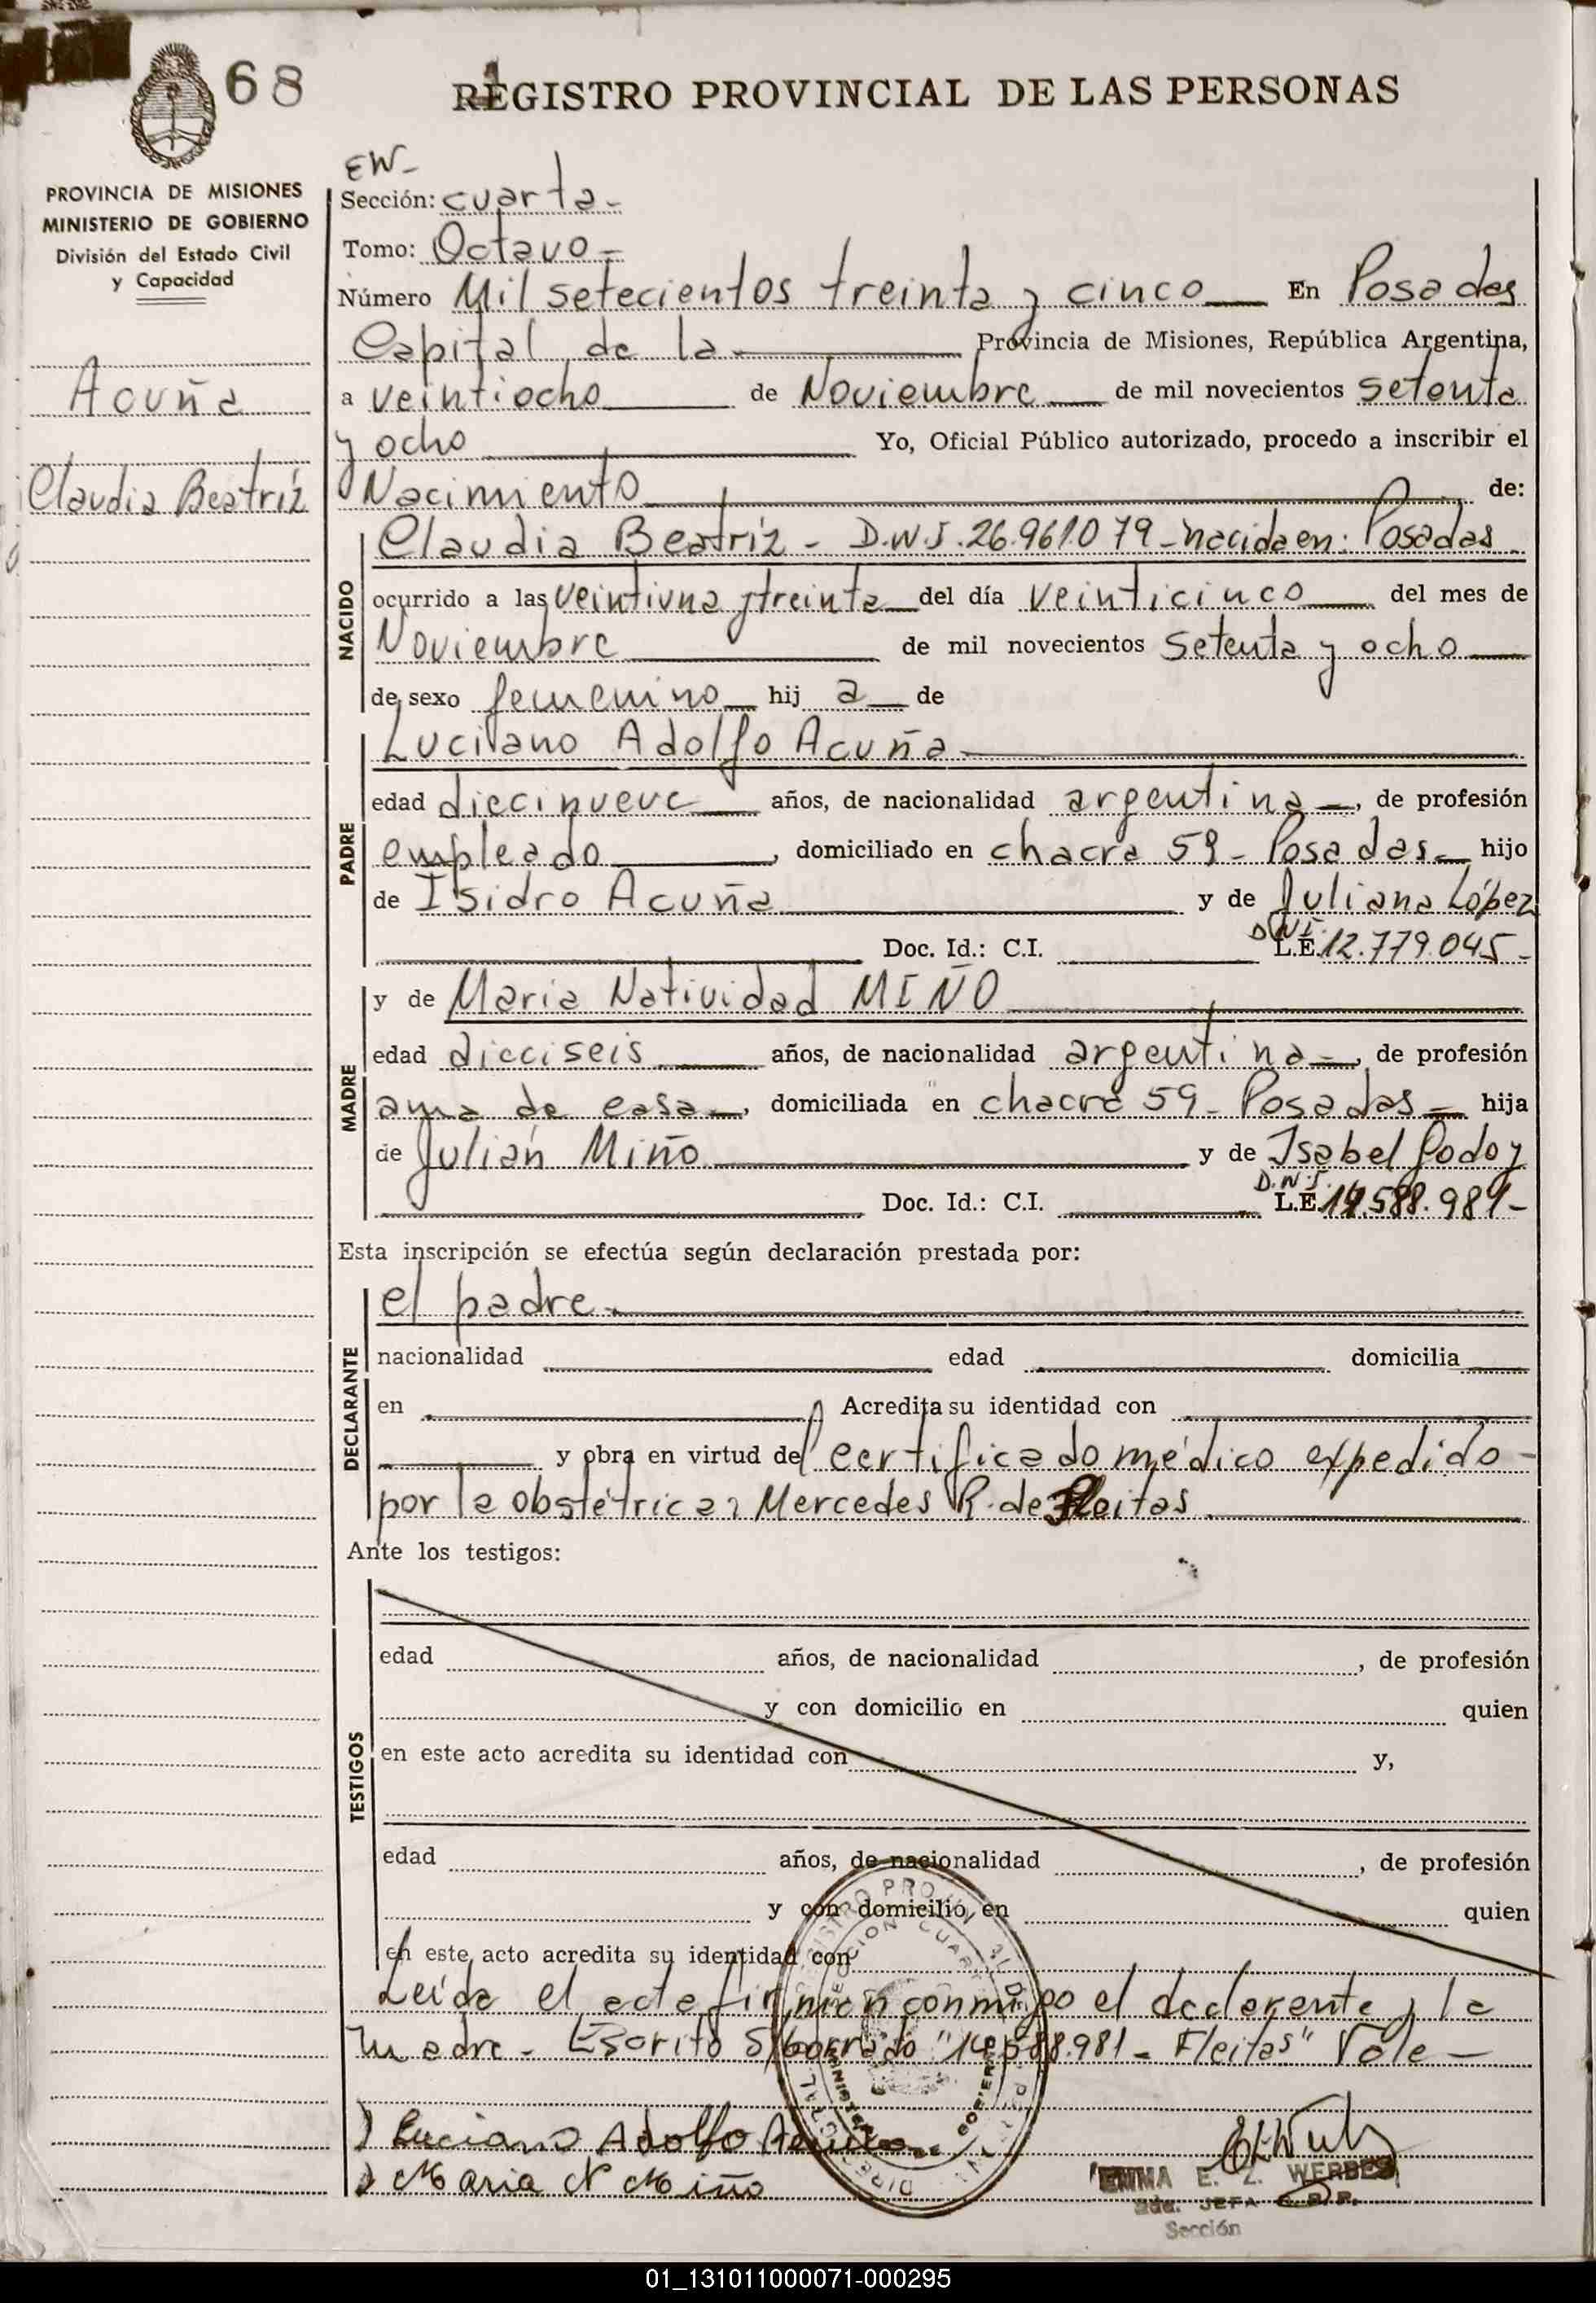 68
REGISTRO PROVINCIAL DE LAS PERSONAS
PROVINCIA DE MISIONES
MINISTERIO DE GOBIERNO
División del Estado Civil
y Capacidad
Acuña
Claudia Beatríz
EW-
Sección: cuarta-
Tomo: Octavo-
Número Mil setecientos treinta y cinco En Posadas
Capital de la Provincia de Misiones, República Argentina,
a veintiocho de Noviembre de mil novecientos setenta
y ocho Yo, Oficial Público autorizado, procedo a inscribir el
Nacimiento de:
NACIDO
Claudia Beatríz - D.N.I. 26.961.079 - nacida en: Posadas
ocurrido a las veintiuna y treinta del día veinticinco del mes de
Noviembre de mil novecientos setenta y ocho
de sexo femenino hij a de
PADRE
Luciano Adolfo Acuña
edad diecinueve años, de nacionalidad argentina, de profesión
empleado, domiciliado en chacra 59 - Posadas hijo
de Isidro Acuña y de Juliana López
Doc. Id.: C.I. D.N.I. L.E. 12.779.045-
MADRE
y de Maria Natividad MIÑO
edad dieciseis años, de nacionalidad argentina, de profesión
ama de casa, domiciliada en chacra 59 - Posadas hija
de Julián Miño y de Isabel Godoy
Doc. Id.: C.I. D.N.I. L.E. 14.588.981-
Esta inscripción se efectúa según declaración prestada por:
DECLARANTE
el padre
nacionalidad edad domicilia
en Acredita su identidad con
y obra en virtud del certificado médico expedido-
por la obstétrica: Mercedes R. de Fleitas
Ante los testigos:
TESTIGOS
edad años, de nacionalidad , de profesión
y con domicilio en quien
en este acto acredita su identidad con y,
edad años, de nacionalidad , de profesión
y con domicilio en quien
en este acto acredita su identidad con
Leída el acta firman conmigo el declarente y la
madre - Escrito S/borrado "14.588.981 - Fleitas" Vale -
) Luciano Adolfo Acuña
) Maria N Miño
EMMA E. Z. WERBES
2da. JEFA
Sección
01_131011000071-000295